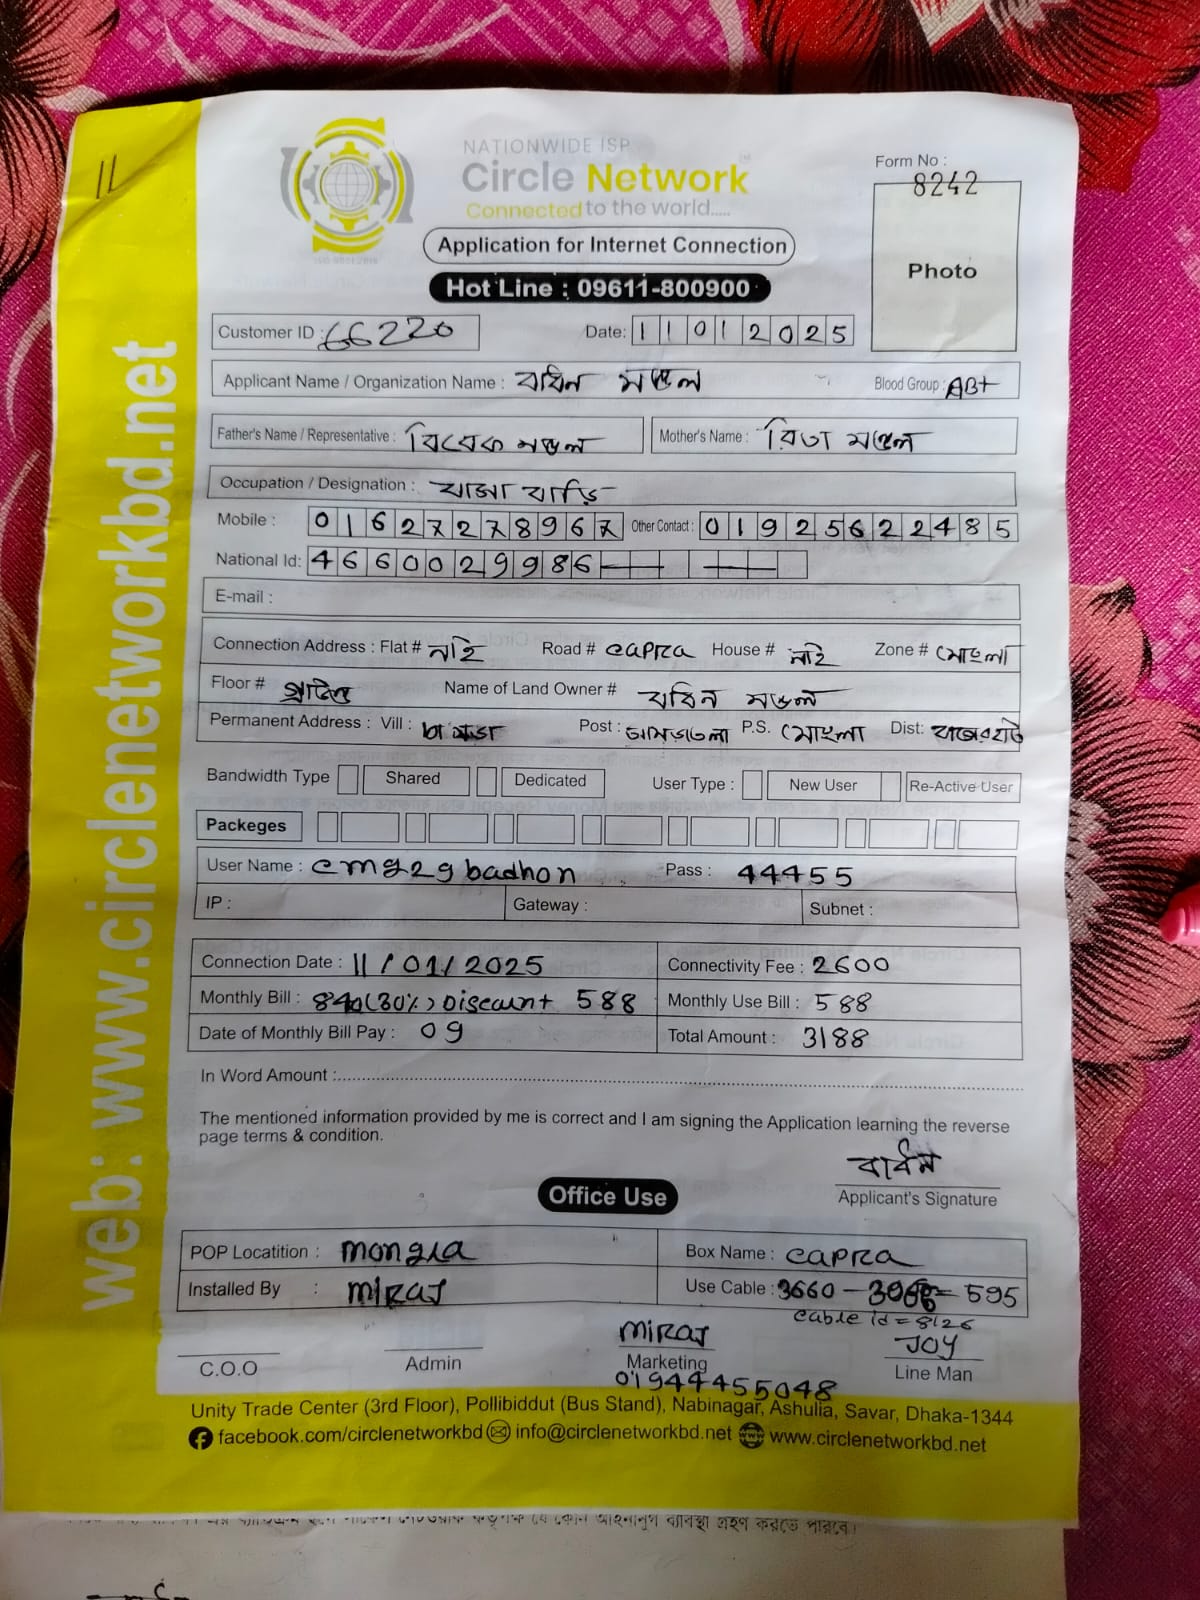 11
NATIONWIDE ISP
Circle Network
Connected to the world.....
Form No :
8242
Photo
Application for Internet Connection
Hot Line : 09611-800900
Customer ID : 66220
Date: 11 01 2025
Applicant Name / Organization Name : বাধন মন্ডল
Blood Group : AB+
Father's Name / Representative : বিবেক মন্ডল
Mother's Name : রিতা মন্ডল
Occupation / Designation :
Mobile : 01627278967
Other Contact : 01925622485
National Id: 4660029986
E-mail :
Connection Address : Flat # নাই Road # capra House # নাই Zone # মোংলা
Floor # Name of Land Owner # বাধন মন্ডল
Permanent Address : Vill : Post : P.S. মোংলা Dist: বাগেরহাট
Bandwidth Type Shared Dedicated User Type : New User Re-Active User
Packeges
User Name : cmg29badhon Pass : 44455
IP : Gateway : Subnet :
Connection Date : 11/01/2025 Connectivity Fee : 2600
Monthly Bill : 840(30%) Discount 588 Monthly Use Bill : 588
Date of Monthly Bill Pay : 09 Total Amount : 3188
In Word Amount :
The mentioned information provided by me is correct and I am signing the Application learning the reverse
page terms & condition.
বাধন
Applicant's Signature
Office Use
POP Locatition : mongla Box Name : capra
Installed By : miraj Use Cable : 3660 - = 595
cable id = 8126
miraj JOY
C.O.O Admin Marketing Line Man
01944455048
Unity Trade Center (3rd Floor), Pollibiddut (Bus Stand), Nabinagar, Ashulia, Savar, Dhaka-1344
facebook.com/circlenetworkbd info@circlenetworkbd.net www.circlenetworkbd.net
web: www.circlenetworkbd.net
যে কোন আইনানুগ ব্যবস্থা গ্রহণ করতে পারবে।